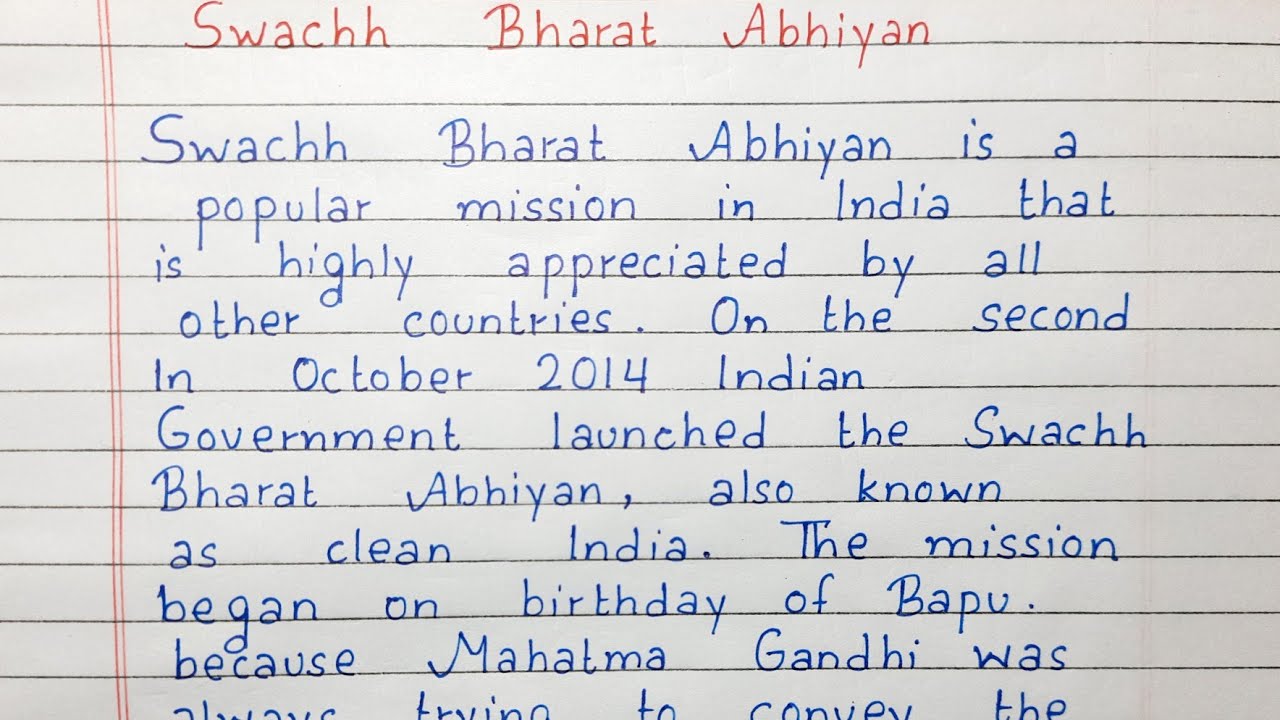 Swachh Bharat Abhiyan
Swachh Bharat Abhiyan is a
popular mission in India that
is highly appreciated by all
other countries. On the second
In October 2014 Indian
Government launched the Swachh
Bharat Abhiyan, also known
as clean India. The mission
began on birthday of Bapu.
because Mahatma Gandhi was
always trying to convey the